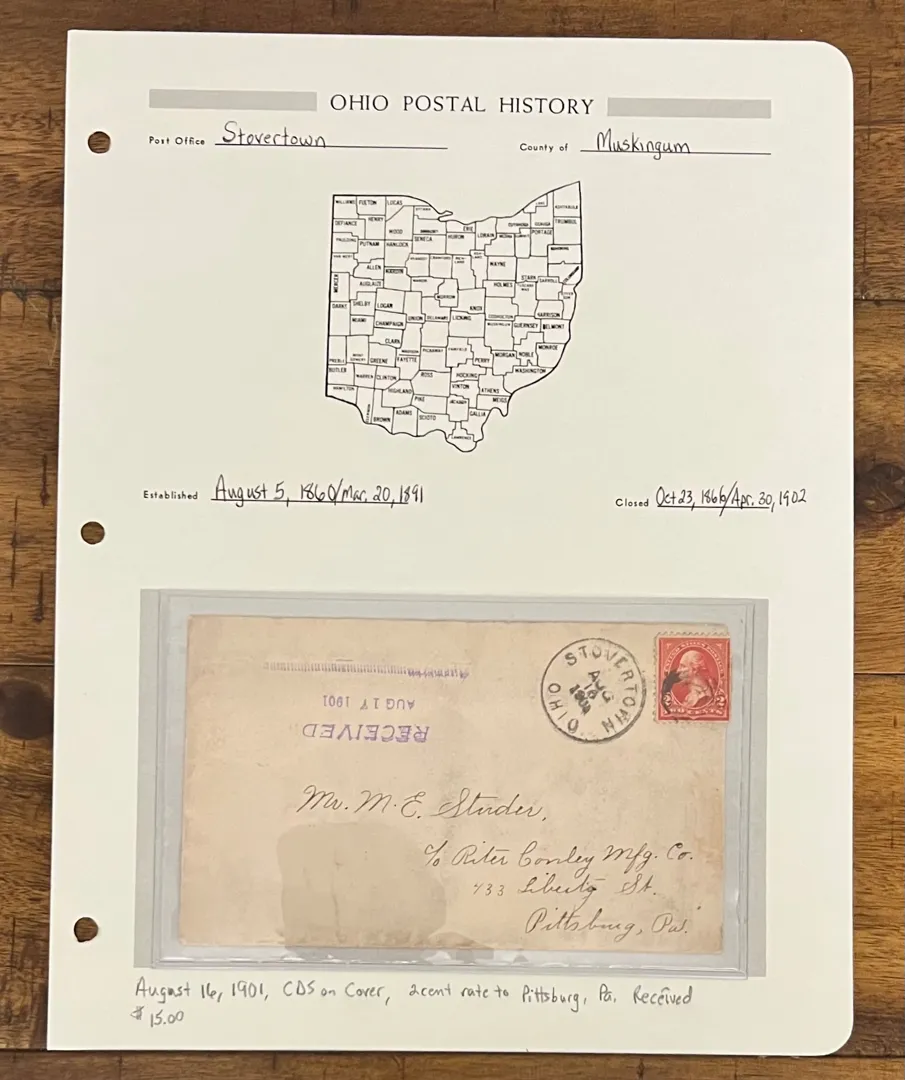 OHIO POSTAL HISTORY
Post Office Stovertown County of Muskingum
WILLIAMS FULTON LUCAS
OTTAWA LAKE ASHTABULA
DEFIANCE HENRY WOOD SANDUSKY ERIE LORAIN CUYAHOGA GEAUGA TRUMBULL
PAULDING PUTNAM HANCOCK SENECA HURON MEDINA SUMMIT PORTAGE
VAN WERT ALLEN WYANDOT CRAWFORD RICHLAND ASHLAND WAYNE STARK MAHONING
MERCER AUGLAIZE HARDIN MARION MORROW HOLMES CARROLL COLUMBIANA
DARKE SHELBY LOGAN UNION DELAWARE KNOX LICKING COSHOCTON HARRISON
MIAMI CHAMPAIGN GUERNSEY BELMONT
CLARK MADISON PICKAWAY FAIRFIELD PERRY MORGAN NOBLE MONROE
PREBLE GREENE FAYETTE WASHINGTON
BUTLER WARREN CLINTON ROSS HOCKING ATHENS
HAMILTON HIGHLAND PIKE VINTON MEIGS
BROWN ADAMS SCIOTO JACKSON GALLIA
LAWRENCE
Established August 5, 1860/Mar. 20, 1891 Closed Oct 23, 1866/Apr. 30, 1902
STOVERTOWN OHIO
AUG
16
1901
UNITED STATES POSTAGE
2 2
TWO CENTS
RECEIVED
AUG 17 1901
Mr. M. E. Studer,
c/o Riter Conley Mfg. Co.
733 Liberty St.
Pittsburg, Pa.
August 16, 1901, CDS on Cover, 2cent rate to Pittsburg, Pa. Received
$15.00